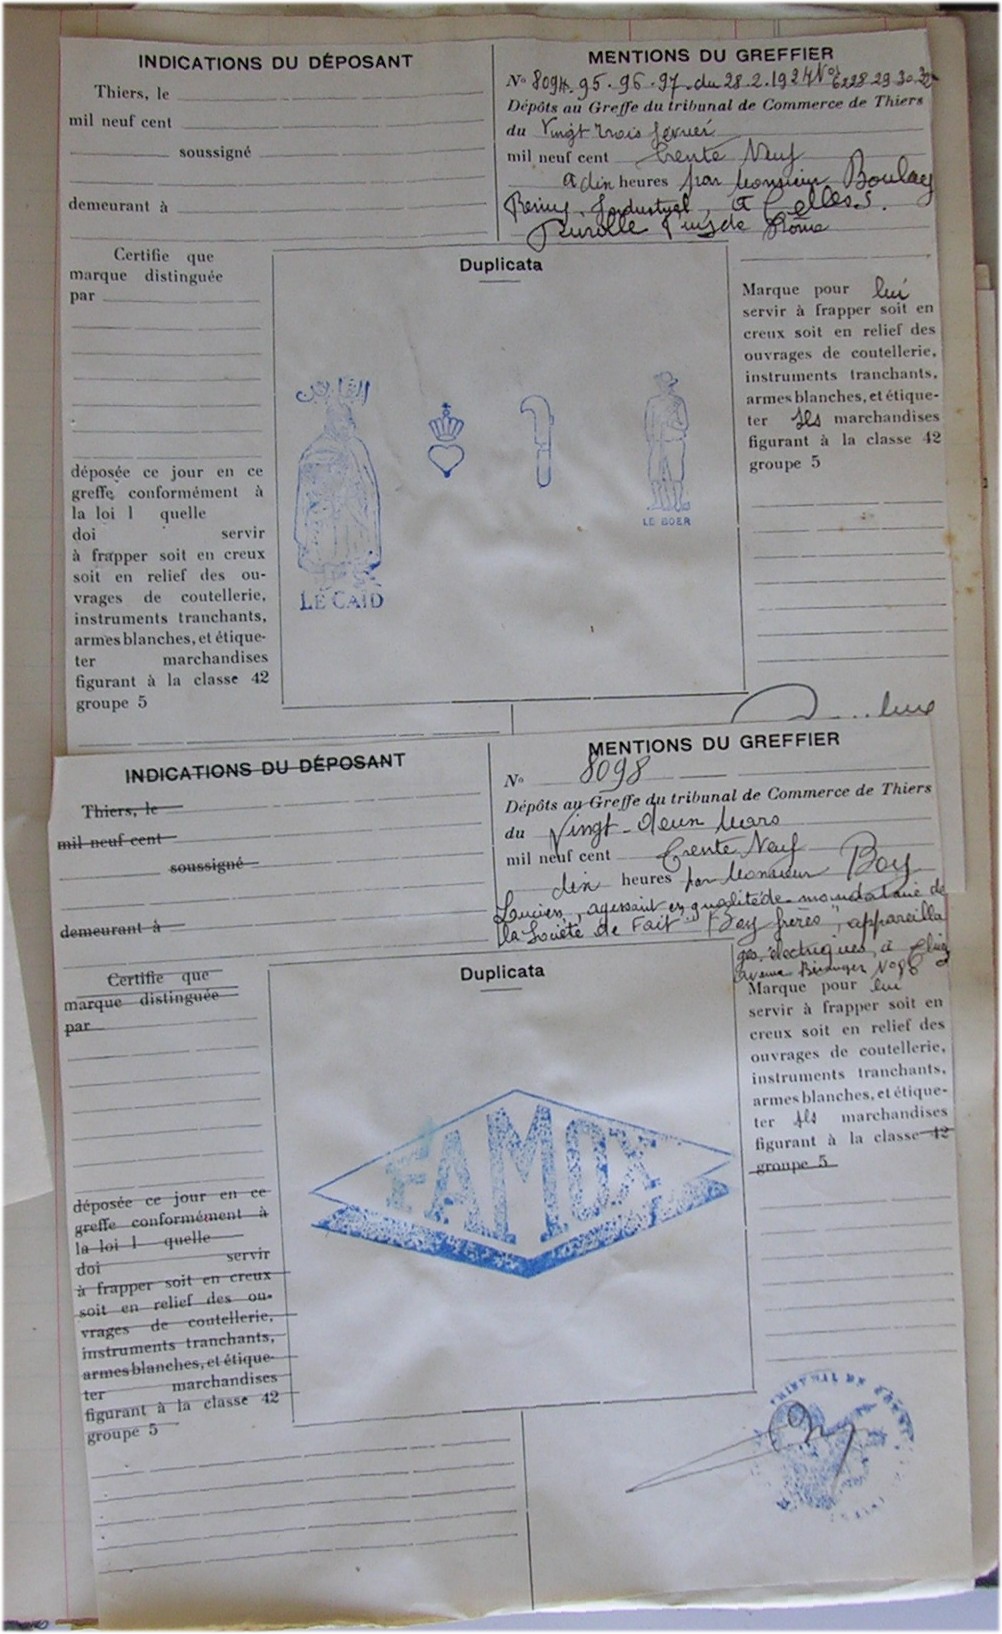 INDICATIONS DU DÉPOSANT
Thiers, le
mil neuf cent
soussigné
demeurant à
Certifie que
marque distinguée
par
déposée ce jour en ce
greffe conformément à
la loi l quelle
doi servir
à frapper soit en creux
soit en relief des ou-
vrages de coutellerie,
instruments tranchants,
armes blanches, et étique-
ter marchandises
figurant à la classe 42
groupe 5
MENTIONS DU GREFFIER
N° 8094. 95. 96. 97. du 28.2.1924 Nos 6228 29 30 32
Dépôts au Greffe du tribunal de Commerce de Thiers
du Vingt trois février
mil neuf cent trente Neuf
à dix heures par Monsieur Boulay
Industriel, à Celles s.
Durolle Puy de Dôme
Duplicata
LE CAID
LE BOER
Marque pour lui
servir à frapper soit en
creux soit en relief des
ouvrages de coutellerie,
instruments tranchants,
armes blanches, et étique-
ter les marchandises
figurant à la classe 42
groupe 5
INDICATIONS DU DÉPOSANT
Thiers, le
mil neuf cent
soussigné
demeurant à
Certifie que
marque distinguée
par
déposée ce jour en ce
greffe conformément à
la loi l quelle
doi servir
à frapper soit en creux
soit en relief des ou-
vrages de coutellerie,
instruments tranchants,
armes blanches, et étique-
ter marchandises
figurant à la classe 42
groupe 5
MENTIONS DU GREFFIER
N° 8098
Dépôts au Greffe du tribunal de Commerce de Thiers
du Vingt-deux Mars
mil neuf cent trente Neuf
dix heures par Monsieur Boy
Lucien, agissant en qualité de mandataire de
la Société de Fait "Boy frères", appareilla
ges électriques, à Thiers
avenue Béranger N°
Duplicata
FAMOX
Marque pour lui
servir à frapper soit en
creux soit en relief des
ouvrages de coutellerie,
instruments tranchants,
armes blanches, et étique-
ter les marchandises
figurant à la classe 42
groupe 5
TRIBUNAL DE COMM